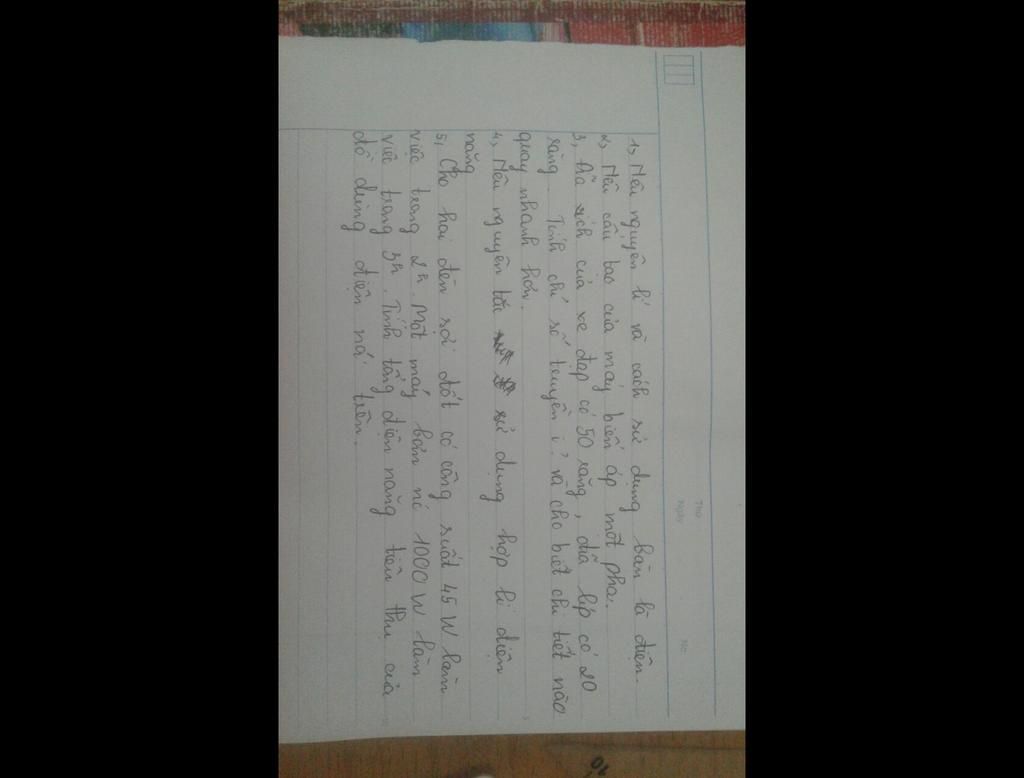 Thứ
Ngày
No
1, Nêu nguyên lí và cách sử dụng bàn là điện.
2, Nêu cấu tạo của máy biến áp một pha.
3, Đĩa xích của xe đạp có 50 răng, đĩa líp có 20
răng. Tính chỉ số truyền i? và cho biết chi tiết nào
quay nhanh hơn.
4, Nêu nguyên tắc sử dụng hợp lí điện
năng
5, Cho hai đèn sợi đốt có công suất 45 W làm
việc trong 2h. Một máy bơm nó 1000 W làm
việc trong 3h. Tính tổng điện năng tiêu thụ của
đồ dùng điện nói trên.
10